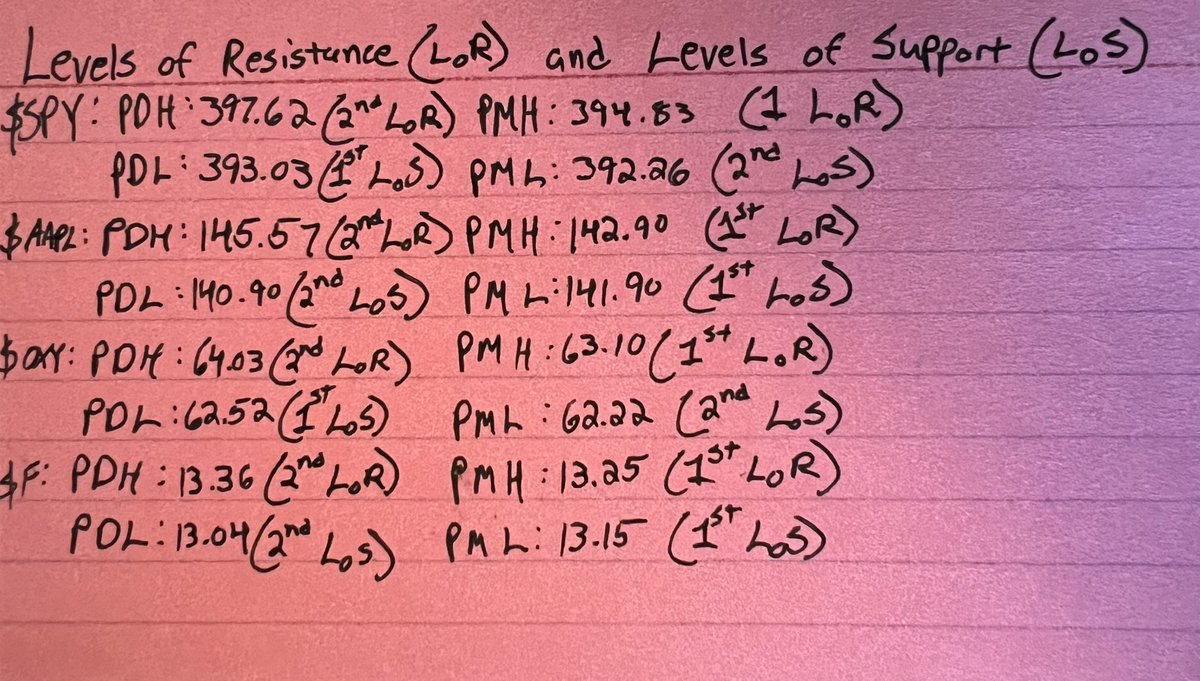 Levels of Resistance (LoR) and Levels of Support (LoS)
$SPY: PDH: 397.62 (2nd LoR) PMH: 394.83 (1 LoR)
PDL: 393.03 (1st LoS) PML: 392.26 (2nd LoS)
$AAPL: PDH: 145.57 (2nd LoR) PMH: 142.90 (1st LoR)
PDL: 140.90 (2nd LoS) PML: 141.90 (1st LoS)
$OXY: PDH: 64.03 (2nd LoR) PMH: 63.10 (1st LoR)
PDL: 62.52 (1st LoS) PML: 62.22 (2nd LoS)
$F: PDH: 13.36 (2nd LoR) PMH: 13.25 (1st LoR)
PDL: 13.04 (2nd LoS) PML: 13.15 (1st LoS)